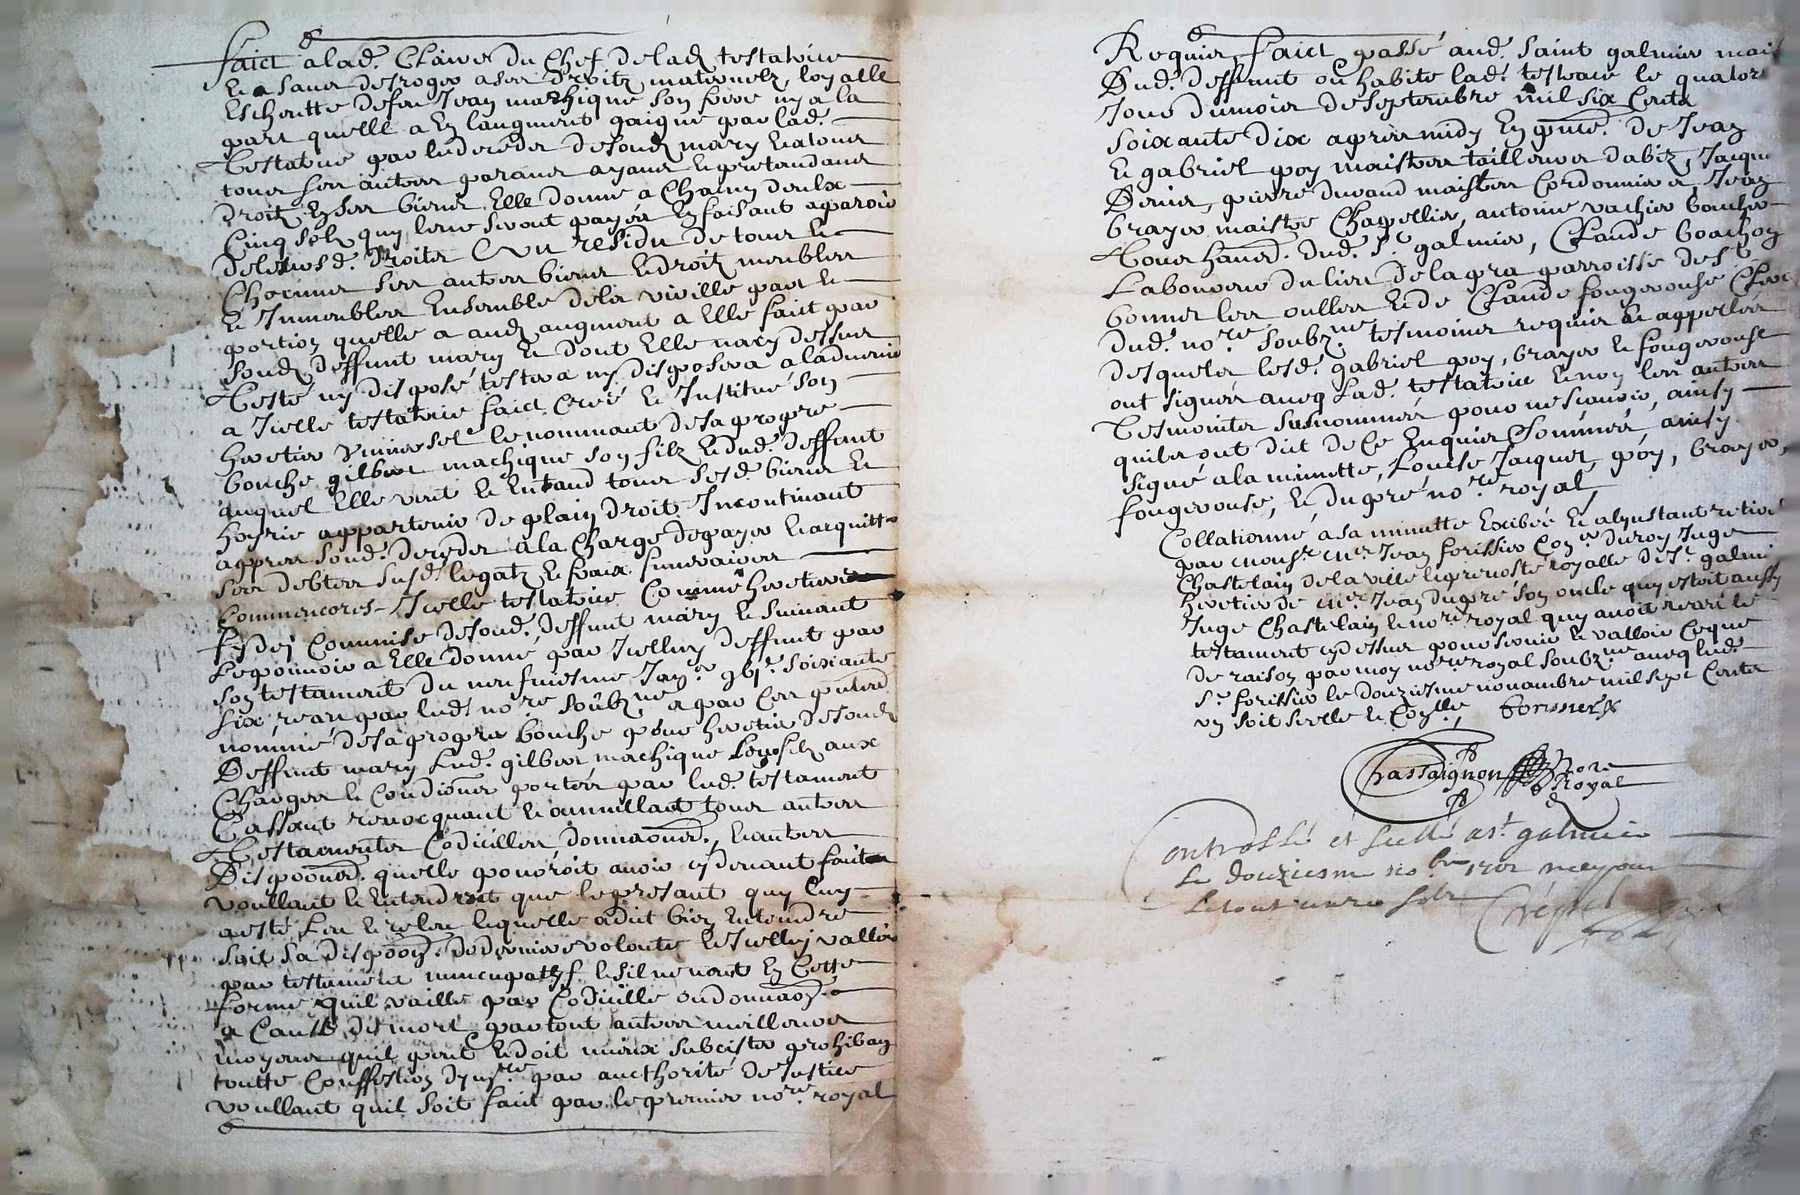 faict a lad. Claire du chef de lad. testatrice
et a sa
escheutte de feu Jean machique son frere ny a la
part quelle a en laugment gaigné par lad.
testatrice par le decedz de sond. mary et a tous
tous ses autres parans ayans et pretandans
droit en ses biens Elle donne a chacun deulx
Cinq solz quy leur seront payés en faisant aparoir
de leursd. droits Et au residu de tous et
chacuns ses autres biens et droitz meubles
et Immeubles Ensemble de la par et
portion quelle a aud. augment a Elle fait par
sond. deffunt mary et dont Elle na cy dessus
testé ny disposé testera ny disposera a ladvenir
a Icelle testatrice faict, créé et Institué son
heretier universel le nommant de sa propre
bouche gilbert machique son filz et dud. deffunt
auquel Elle veut et entand tous sesd. biens et
hoyrie appartenir de plain droit Incontinant
appres sond. decedz a la charge de payer et acquitter
ses debtes susd. legatz et fraix funeraires
Icelle testatrice Comme heretiere
fydei Commise de sond. deffunt mary et suivant
le pouvoir a Elle donné par Icelluy deffunt par
son testament du neufviesme Jan.er soixante
six receu par led. no.re soubz.né a par ces p
nommé de sa propre bouche pour heretier de sond.
deffunt mary led. gilbert machique leur filz aux
charges et conditions portées par led. testament
Cassant revocquant et annullant tous autres
testamentz Codicilles donna.ons, et autres
dispo.ons quelle pourroit avoir cy devant faites
voullant et entendant que le presant quy luy
a esté leu et releu lequelle a dit bien entendre
soit sa dispo.on de derniere volonté et Icelluy valloir
par testament nuncupatif et sil ne vaut en Cette
forme quil vaille par Codicille ou donna.on
a cause de mort par tout autres meilleures
moyens quil peut et doit mieux subcister prohiban
toutte Confestion dinv.re par aucthorité de Justice
voullant quil soit fait par le premier no.re royal
Requis, faict passé aud. saint galmier mais
dud. deffunt ou habite lad. testatrice le quator
Jour du mois de septembre mil six Cents
soixante dix apres midy En p.nce de Jean
et gabriel poy maistres tailleurs dabitz, Jacque
pierre durand maistres Cordonniers, Jean
brayer maistre Chapellier, antoine vachier boucher
tous dud. St galmier, Claude boachon
Laboureur du lieu de la pra parroisse de St
bonnet les oulles et de Claude fougerouse Clerc
dud. no.re soubz.né tesmoins requis et appellés
desquels lesd. gabriel poy, brayer et fougerouse
ont signés avec lad. testatrice et non les autres
tesmointz susnommés pour ne scavoir, ainsy
quils ont dit de ce Enquis et Sommés ainsy
signé a la minutte, Louise Jacquet, poy, brayer,
fougerouse, et dupré no.re royal,
Collationné a sa minutte Exibée et a linstant retiré
par mons.r m.re Jean forissier Con.er du roy Juge
Chastelain de la ville et prevosté royalle de St galmi
heretier de m.re Jean dupré son oncle quy estoit aussy
Juge Chastelain et no.re royal quy avoit receu le
testament cy dessus pour servir et valloir ce que
de raison par moy no.re royal soubz.né avec led.
Sr forissier le douziesme novambre mil sept Cents
un soit scelle et Con.lle, forissier
Chassaignon no.re Royal
Controllé et scellé a st galmier
le douziesme no.bre 1701